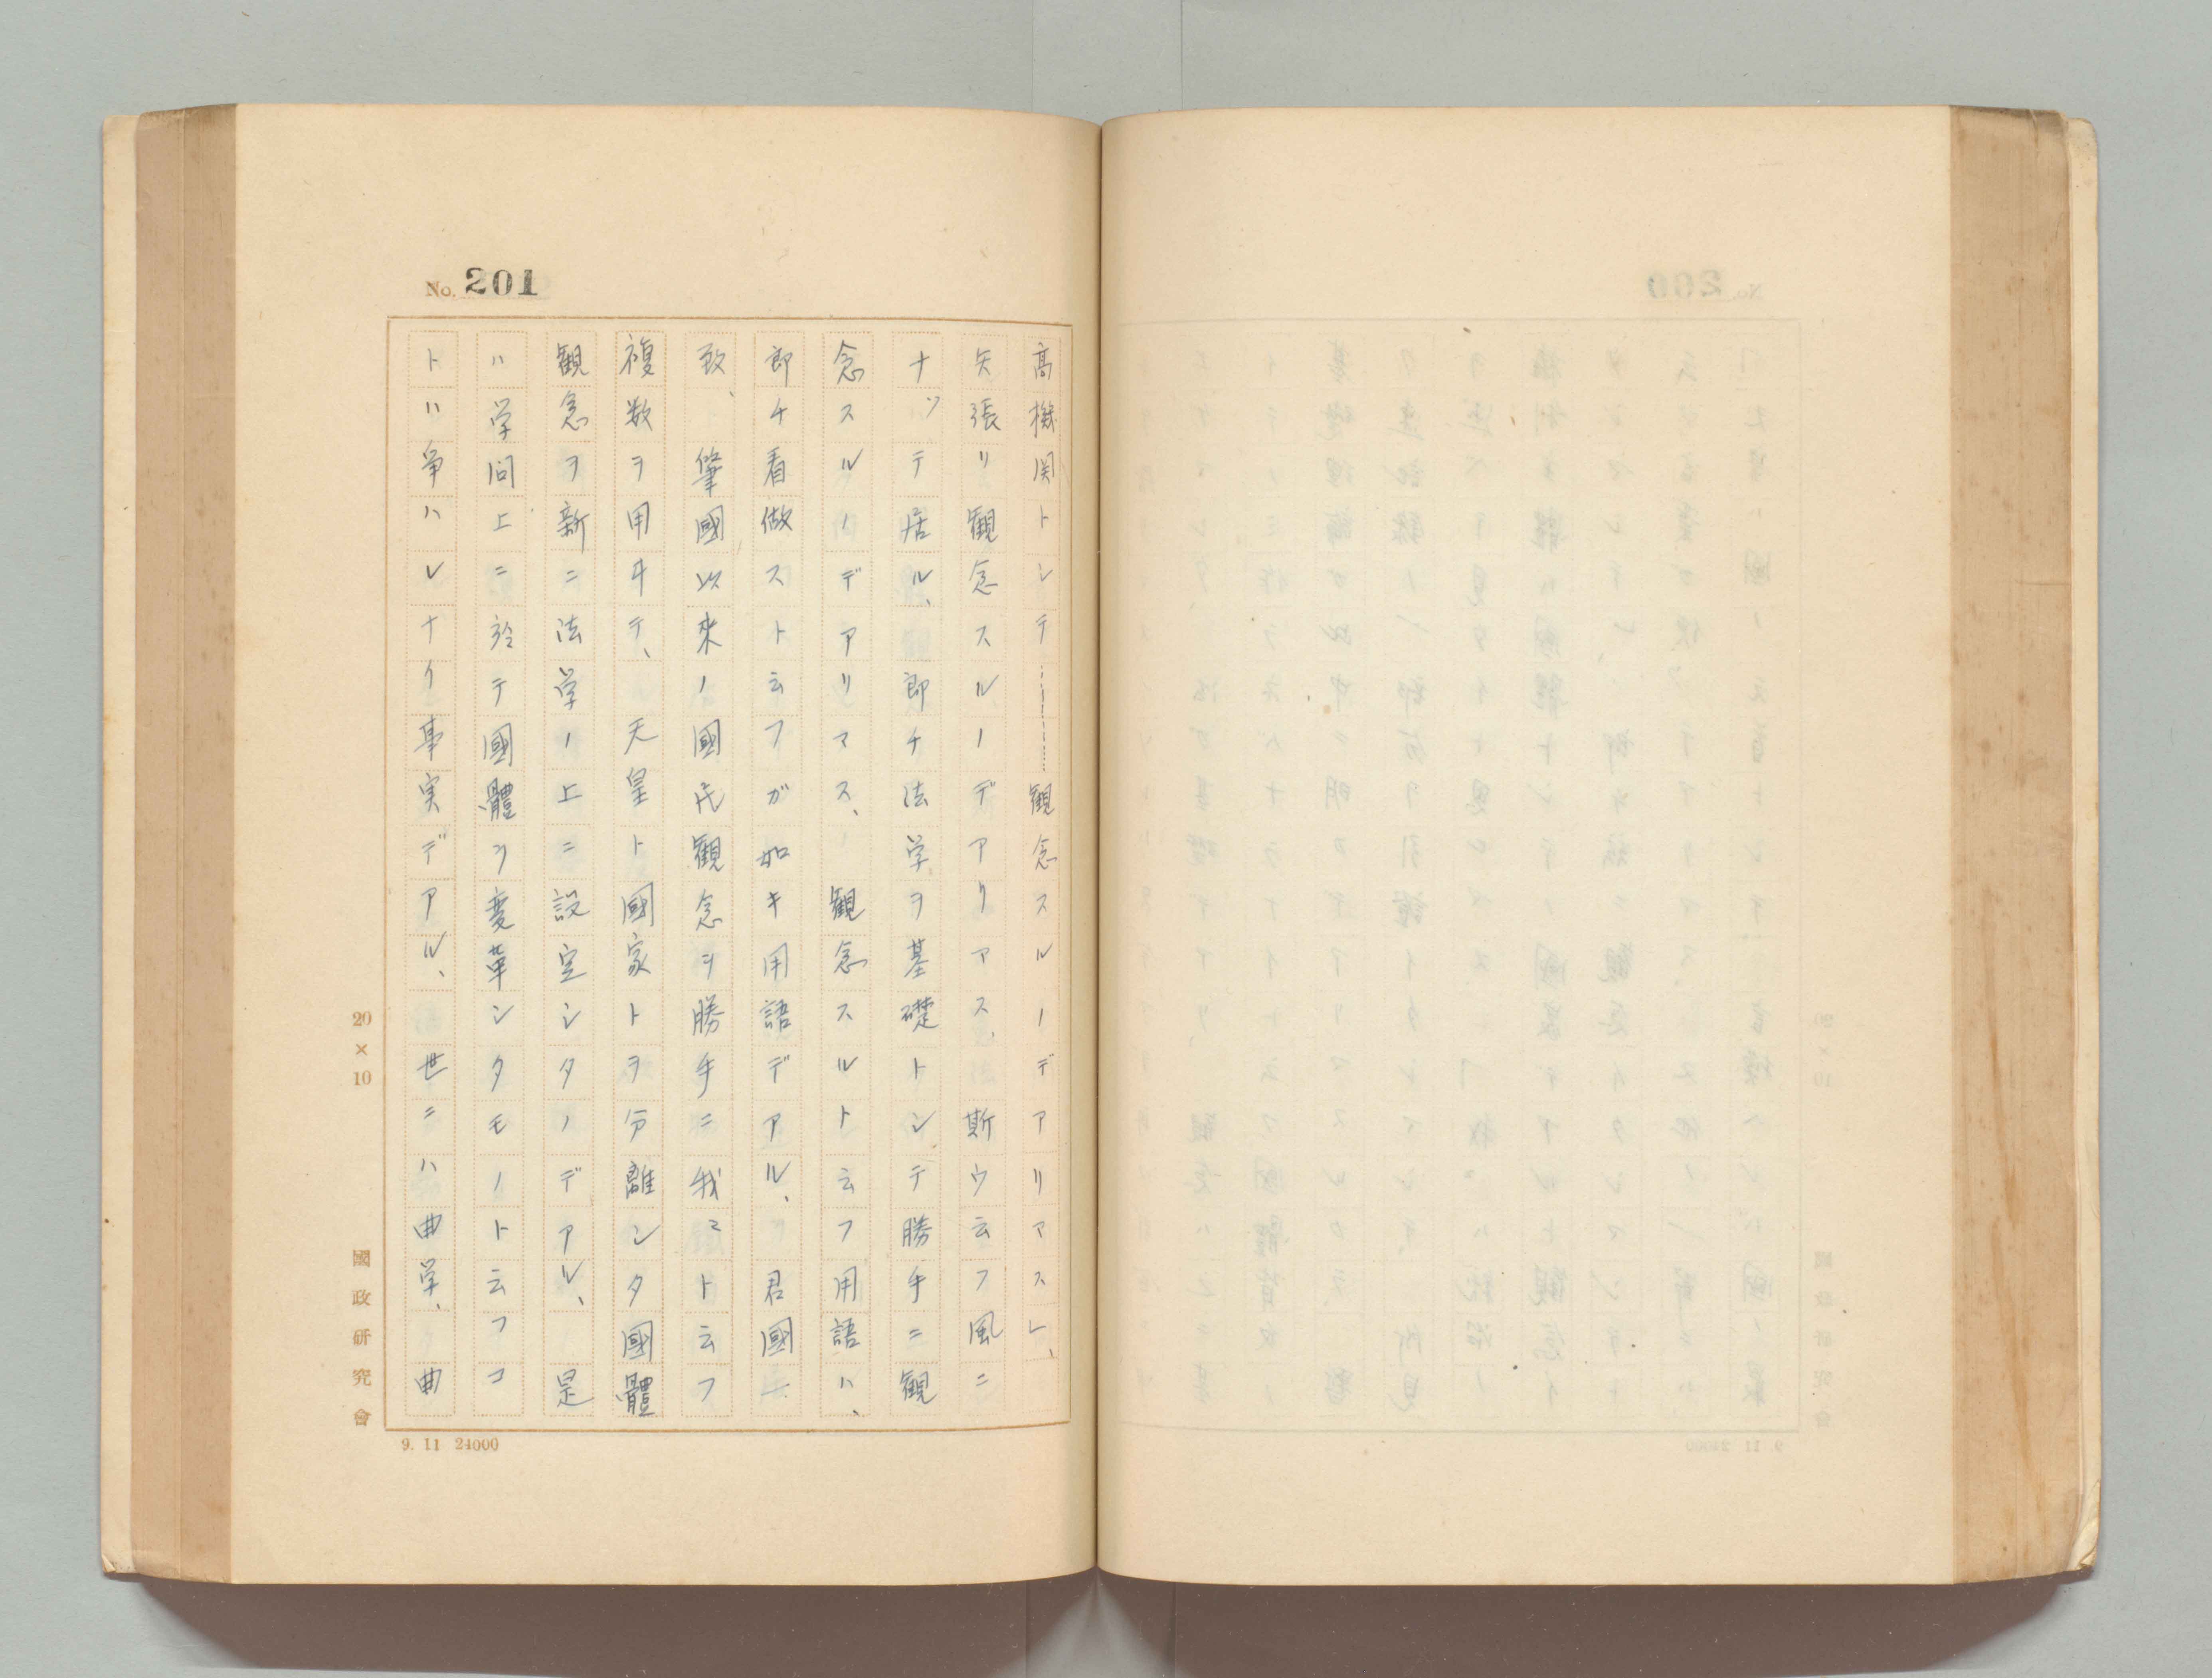 No. 201
高機関トシテ………観念スルノデアリマス」、
矢張リ観念スルノデアリアス、斯ウ云フ風ニ
ナツテ居ル、即チ法学ヲ基礎トシテ勝手ニ観
念スルノデアリマス、観念スルト云フ用語ハ、
即チ看做ストム云フガ如キ用語デアル、君國一
致、肇國以来ノ國民観念ヲ勝手ニ我々ト云フ
複数ヲ用ヰテ、天皇ト國家トヲ分離シタ國體
観念ヲ新ニ法学ノ上ニ設定シタノデアル、是
ハ学问上ニ於テ國體ヲ変革シタモノト云フコ
トハ争ハレナイ事実デアル、世ニハ曲学、曲
20×10
國政研究會
9. 11 24000